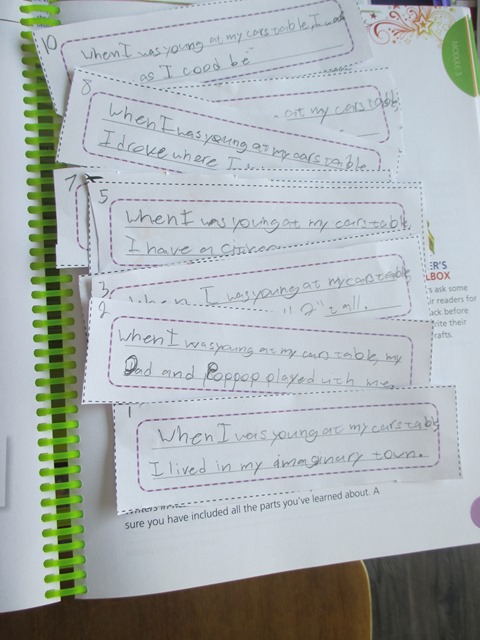 10
When I was young at my cars table, I was
as I cood be
8
at my cars table
When I was young at my cars table
I drove where I
7
5
When I was young at my cars table,
I have a
3
When I was young at my cars table
"2" tall.
2
When I was young at my cars table, my
Dad and Poppop played uith me.
1
When I was young at my cars table
I lived in my imaginary town.
MODULE 3
ER'S
LBOX
s ask some
ir readers for
ack before
rite their
rafts.
sure you have included all the parts you've learned about. A